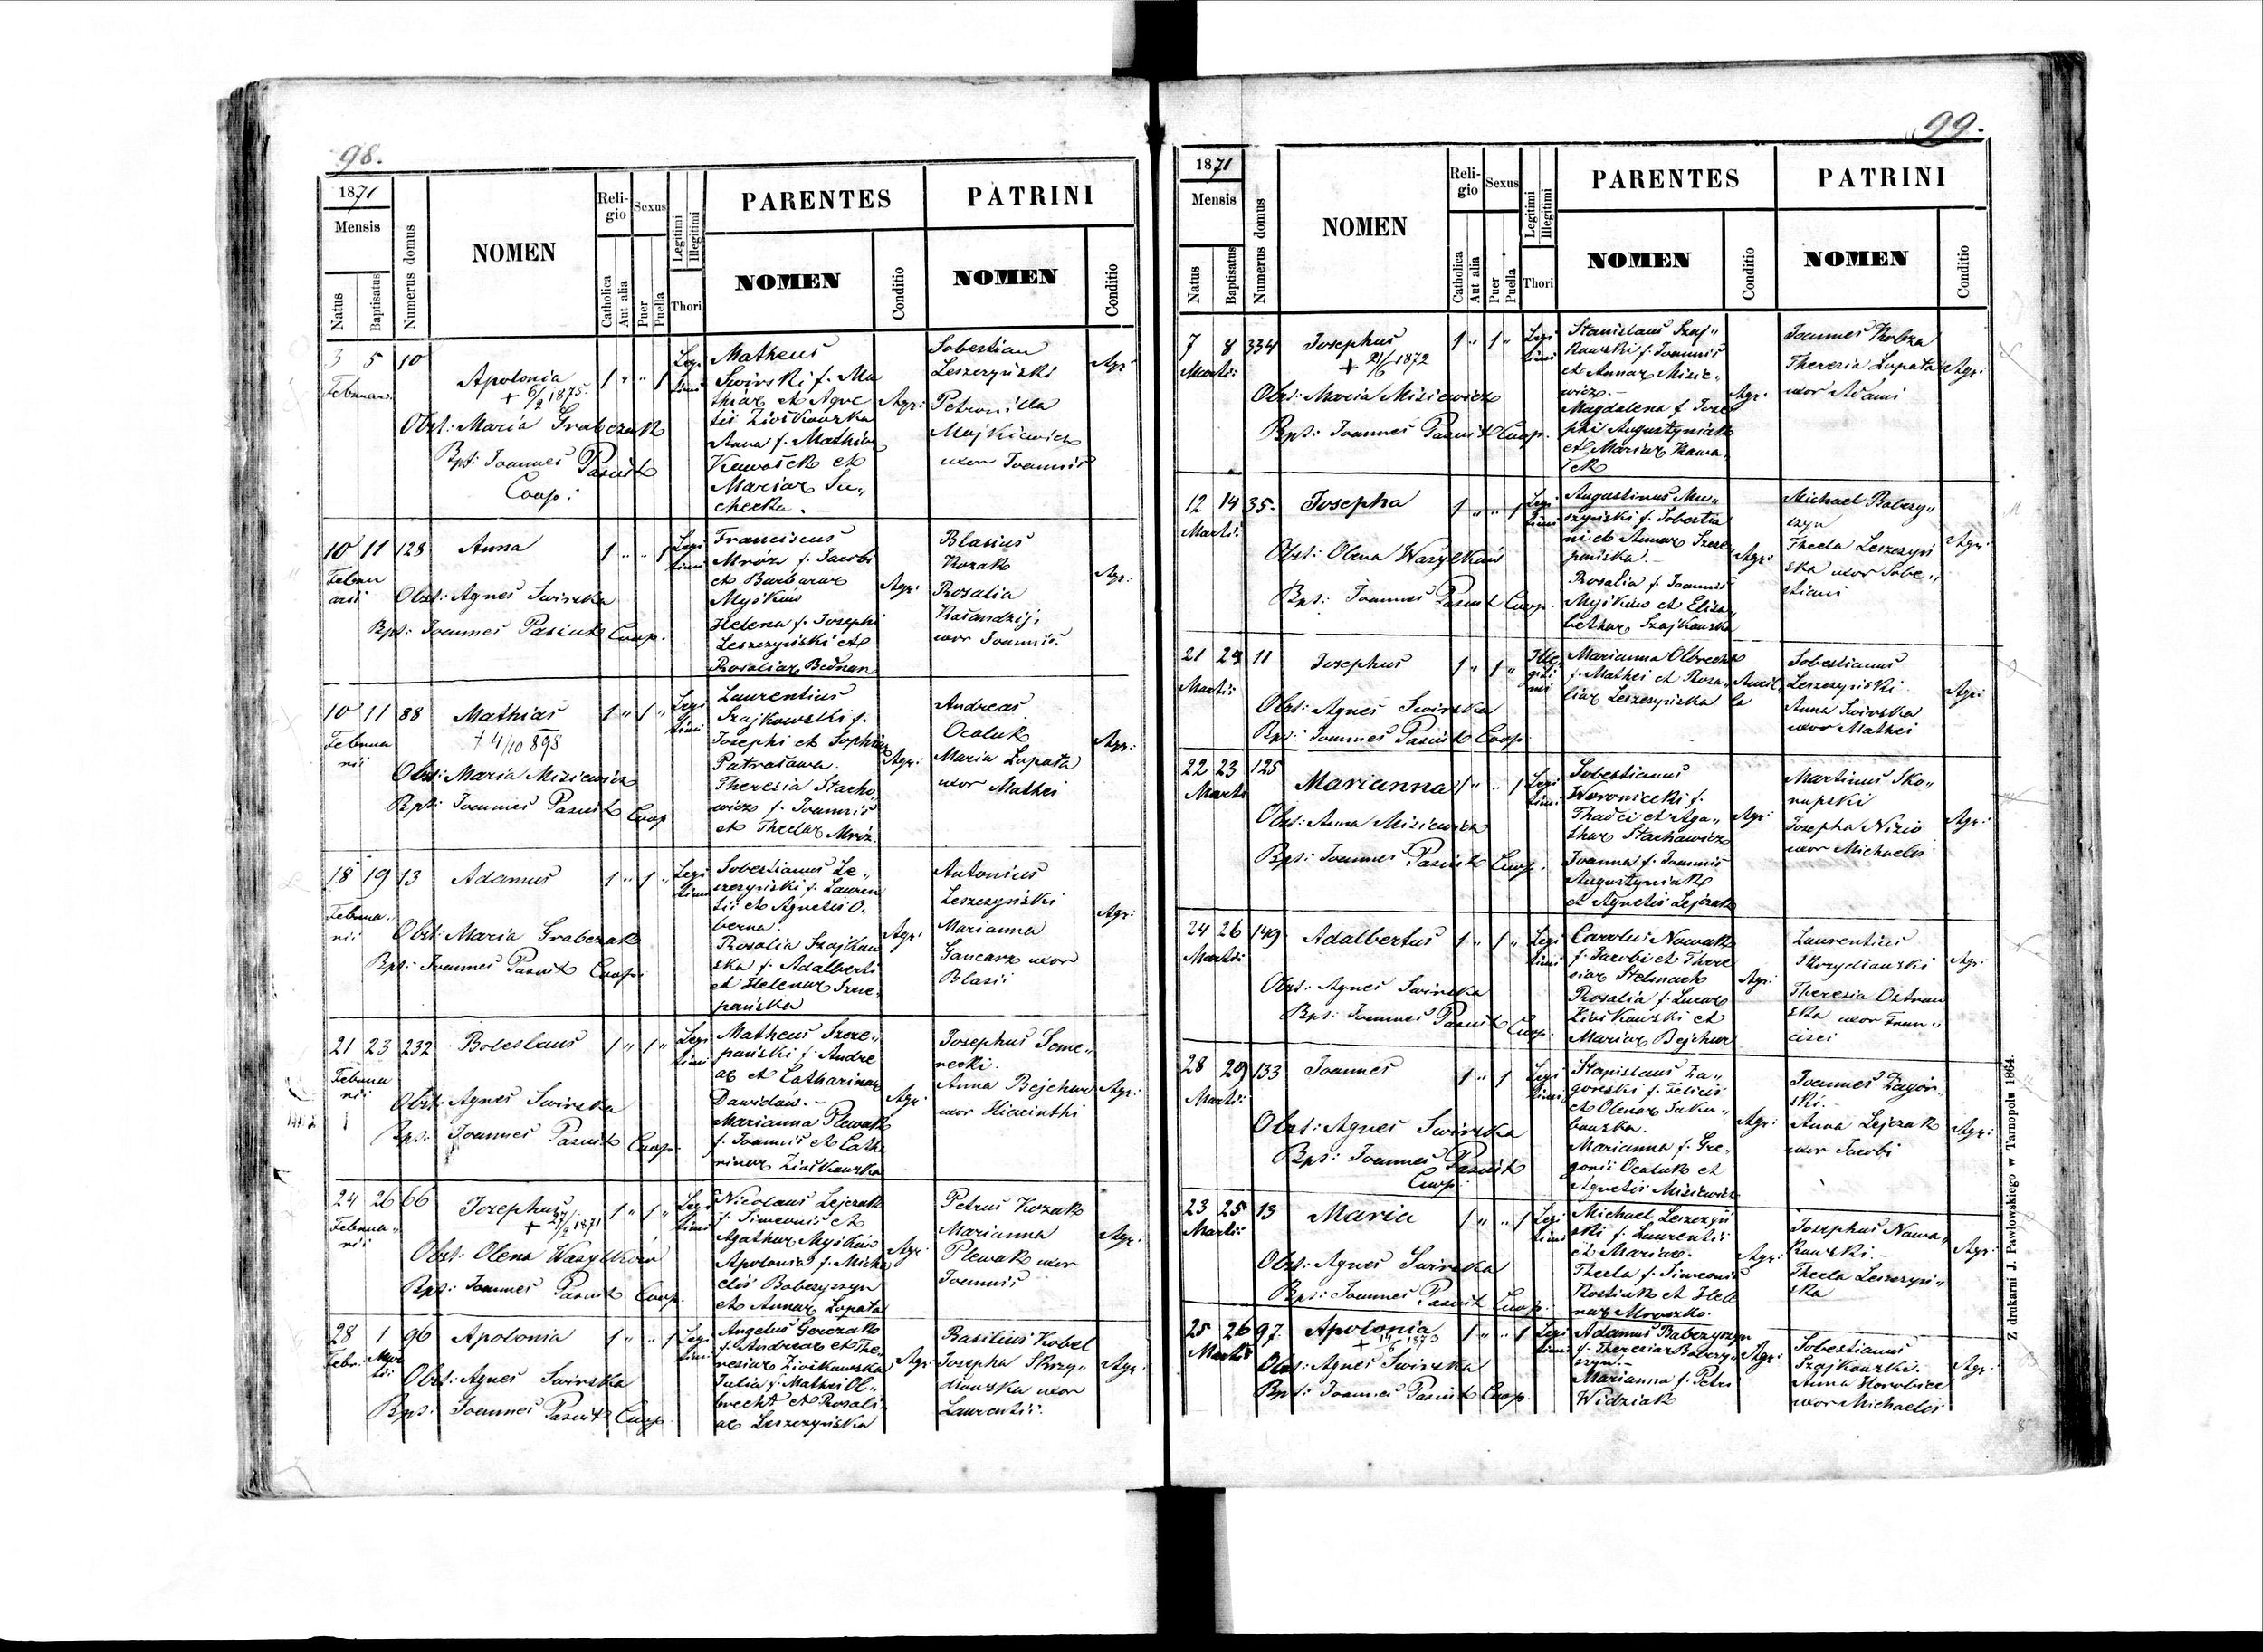 98.
1871
Mensis
Natus
Baptisatus
Numerus domus
NOMEN
Reli-
gio
Catholica
Aut alia
Sexus
Puer
Puella
Legitimi
Illegitimi
Thori
PARENTES
NOMEN
Conditio
PATRINI
NOMEN
Conditio
3 5 10
Februarii
Apolonia
+ 6/2 1875.
Obst: Maria Grabczak
Bpt: Joannes Pasiut
Coop:
1 " " 1
Legi
timi
Matheus
Swirski f. Ma
thiae et Agne
tis Ziółkowska
Anna f. Mathiae
Kawałek et
Mariae Su„
checka.
Agr:
Sobestian
Leszczyński
Petronilla
Majkiewicz
uxor Joannis
Agr:
10 11 128
Febru
arii
Anna
Obst: Agnes Swirska
Bpt: Joannes Pasiut Coop.
1 " " 1
Legi
timi
Franciscus
Mróz f. Jacobi
et Barbarae
Myśków
Helena f. Josephi
Leszczyński et
Rosaliae Bednarz
Agr:
Blasius
Kozak
Rosalia
uxor Joannis.
Agr:
10 11 88
Februa
rii
Mathias
+ 4/10 898
Obst: Maria Misiewicz
Bpt: Joannes Pasiut Coop
1 " 1 "
Legi
timi
Laurentius
Szajkowski f.
Josephi et Sophiae
Theresia Stacho
wicz f. Joannis
et Theclae Mróz.
Agr:
Andreas
Ocaluk
Maria Łopata
uxor Mathei
Agr:
18 19 13
Februa„
rii
Adamus
Obst: Maria Grabczak
Bpt: Joannes Pasiut Coop:
1 " 1 "
Legi
timi
Sobestianus Le„
szczyński f. Lauren
tii et Agnetis O„
berna.
Rosalia Szajkow
ska f. Adalberti
et Helenae Szcze„
pańska
Agr:
Antonius
Leszczyński
Marianna
Gancarz uxor
Blasii
Agr:
21 23 232
Februa
rii
Boleslaus
Obst: Agnes Swirska
Bpt: Joannes Pasiut Coop:
1 " 1 "
Legi
timi
Matheus Szcze„
pański f. Andre
ae et Catharinae
Dawidów.
Marianna Plewak
f. Joannis et Catha
rinae Ziółkowska
Agr:
Josephus Seme„
necki.
Anna Bejchar
uxor Hiacinthi
Agr:
24 26 66
Februa„
rii
Josephus
+ 27/2 1871
Obst: Olena Wasylków
Bpt: Joannes Pasiut Coop.
1 " 1 "
Legi
timi
Nicolaus Lejczak
f. Simeonis et
Agathae Myśków
Apolonia f. Micha
elis Babczyszyn
et Annae Łopata
Agr:
Petrus Kozak
Marianna
Plewak uxor
Joannis
Agr:
28 1 96
Febr. Mar
tii
Apolonia
Obst: Agnes Swirska
Bpt: Joannes Pasiut Coop.
1 " " 1
Legi
timi
Angelus Gerczak
f. Andreae et The„
resiae Ziółkowska
Julia f. Mathei Ol„
brecht et Rosali
ae Leszczyńska
Agr:
Basilius Kobel
Josepha Skrzy„
dłowska uxor
Laurentii.
Agr:
99.
1871
Mensis
Natus
Baptisatus
Numerus domus
NOMEN
Reli-
gio
Catholica
Aut alia
Sexus
Puer
Puella
Legitimi
Illegitimi
Thori
PARENTES
NOMEN
Conditio
PATRINI
NOMEN
Conditio
7 8 334
Martii
Josephus
+ 21/6 1872
Obst: Maria Misiewicz
Bpt: Joannes Pasiut Coop.
1 " 1 "
Legi
timi
Stanislaus Szaj„
kowski f. Joannis
et Annae Misie„
wicz.
Magdalena f. Jose
phi Augustyniak
et Mariae Kawa„
łek
Agr:
Joannes Kobza
Theresia Łopata
uxor Adami
Agr:
12 14 35.
Martii
Josepha
Obst: Olena Wasylków
Bpt: Joannes Pasiut Coop.
1 " " 1
Legi
timi
Augustinus Mu„
szyński f. Sobestia
ni et Annae Szcze
pańska.
Rosalia f. Joannis
Myśków et Elisa
bethae Szajkowska
Agr:
Michael Babczy„
szyn
Thecla Leszczyń
ska uxor Sobe„
stiani
Agr:
21 24 11
Martii
Josephus
Obst: Agnes Swirska
Bpt: Joannes Pasiut Coop
1 " 1 "
Ille
giti
mi
Marianna Olbrecht
f. Mathei et Rosa„
liae Leszczyńska
Ancil
la
Sobestianus
Leszczyński.
Anna Swirska
uxor Mathei
Agr:
22 23 125
Martii
Marianna
Obst: Anna Misiewicz
Bpt: Joannes Pasiut Coop.
1 " " 1
Legi
timi
Sobestianus
Woroniecki f.
Thadei et Aga„
thae Stachowicz
Joanna f. Joannis
Augustyniak
et Agnetis Lejczak
Agr:
Martinus Sko„
rupski
Josepha Nizio
uxor Michaelis
Agr:
24 26 149
Martii
Adalbertus
Obst: Agnes Swirska
Bpt: Joannes Pasiut Coop.
1 " 1 "
Legi
timi
Carolus Nowak
f. Jacobi et There
siae Stelmach
Rosalia f. Lucae
Ziółkowski et
Mariae Bejchar
Agr:
Laurentius
Skrzydłowski
Theresia Ostrow
ska uxor Fran„
cisci
Agr:
28 29 133
Martii
Joannes
Obst: Agnes Swirska
Bpt: Joannes Pasiut
Coop.
1 " 1
Legi
timi
Stanislaus Za„
górski f. Felicis
et Olenae Jaku„
bowska.
Marianna f. Gre„
gorii Ocaluk et
Agnetis Misiewicz
Agr:
Joannes Zagór„
ski.
Anna Lejczak
uxor Jacobi
Agr:
23 25 13
Martii
Maria
Obst: Agnes Swirska
Bpt: Joannes Pasiut Coop.
1 " " 1
Legi
timi
Michael Leszczyń
ski f. Laurentii
et Mariae.
Thecla f. Simeonis
Kostiuk et Hele
nae Mroczko.
Agr:
Josephus Nowa„
kowski.
Thecla Leszczyń„
ska
Agr:
25 26 97.
Martii
Apolonia
Obst: Agnes Swirska
Bpt: Joannes Pasiut Coop.
1 " " 1
Legi
timi
Adamus Babczyszyn
f. Theresiae Babczy„
szyn.
Marianna f. Petri
Widziak
Agr:
Sobestianus
Szajkowski.
Anna Horobiec
uxor Michaelis
Agr:
Z drukarni J. Pawłowskiego w Tarnopolu 1864.